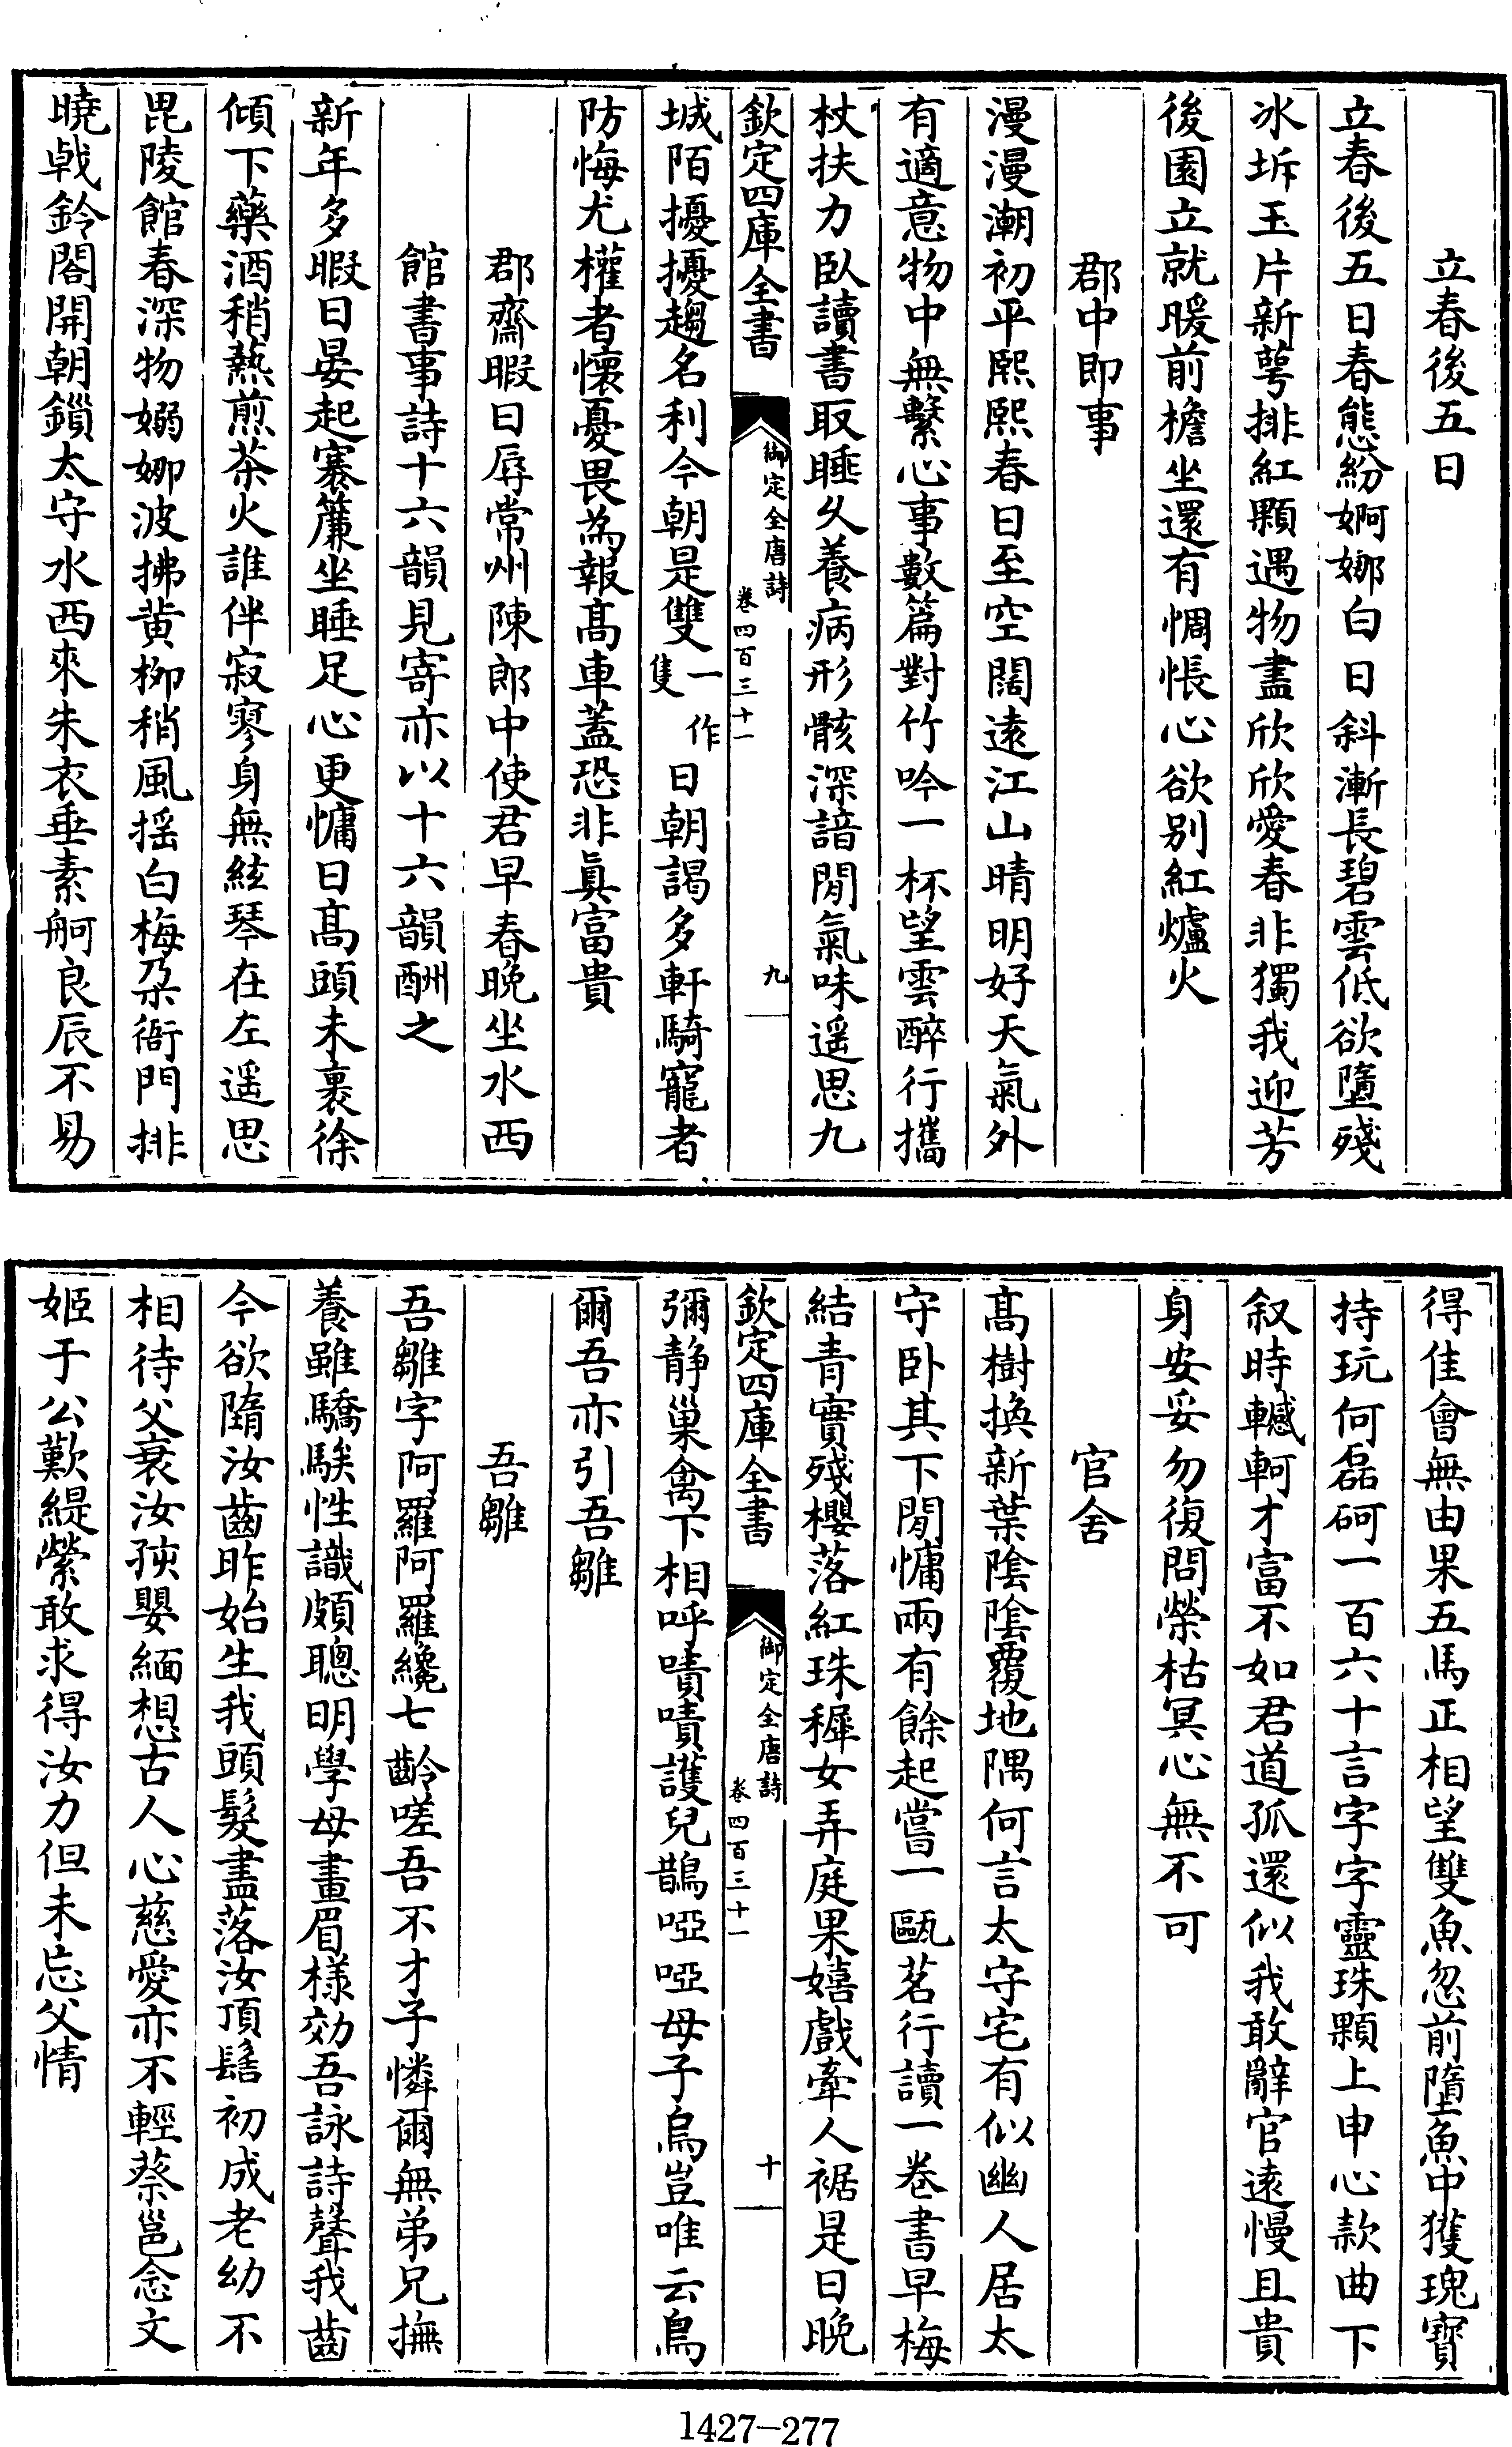 立春後五日
立春後五日春態紛婀娜白日斜漸長碧雲低欲墮殘
冰坼玉片新萼排紅顆遇物盡欣欣愛春非獨我迎芳
後園立就暖前檐坐還有惆悵心欲别紅爐火
郡中即事
漫漫潮初平熙熙春日至空闊遠江山晴明好天氣外
有適意物中無繫心事數篇對竹吟一杯望雲醉行攜
杖扶力臥讀書取睡乆養病形骸深諳閒氣味遥思九
欽定四庫全書
御定全唐詩
卷四百三十一
九
城陌擾擾趨名利今朝是雙一作隻日朝謁多軒騎寵者
防悔尤權者懷憂畏為報髙車蓋恐非真富貴
郡齋暇日辱常州陳郎中使君早春晚坐水西
館書事詩十六韻見寄亦以十六韻酬之
新年多暇日晏起褰簾坐睡足心更慵日髙頭未裹徐
傾下藥酒稍熱煎茶火誰伴寂寥身無絃琴在左遥思
毘陵館春深物嫋娜波拂黄柳稍風摇白梅朶衙門排
曉㦸鈴閣開朝鎻太守水西來朱衣垂素舸良辰不易
得佳會無由果五馬正相望雙魚忽前墮魚中獲瑰寶
持玩何磊砢一百六十言字字靈珠顆上申心款曲下
叙時轗軻才富不如君道孤還似我敢辭官逺慢且貴
身安妥勿復問榮枯冥心無不可
官舍
髙樹換新葉陰陰覆地隅何言太守宅有似幽人居太
守卧其下閒慵兩有餘起嘗一甌茗行讀一卷書早梅
結青實殘櫻落紅珠穉女弄庭果嬉戲牽人裾是日晩
欽定四庫全書
御定全唐詩
卷四百三十一
十
彌静巢禽下相呼嘖嘖護兒鵲啞啞母子烏豈唯云鳥
爾吾亦引吾雛
吾雛
吾雛字阿羅阿羅纔七齡嗟吾不才子憐爾無弟兄撫
養雖驕騃性識頗聰明學母畫眉様効吾詠詩聲我齒
今欲隋汝齒昨始生我頭髮盡落汝頂髻初成老幼不
相待父衰汝孩嬰緬想古人心慈愛亦不輕蔡邕念文
姬于公歎緹縈敢求得汝力但未忘父情
1427-277